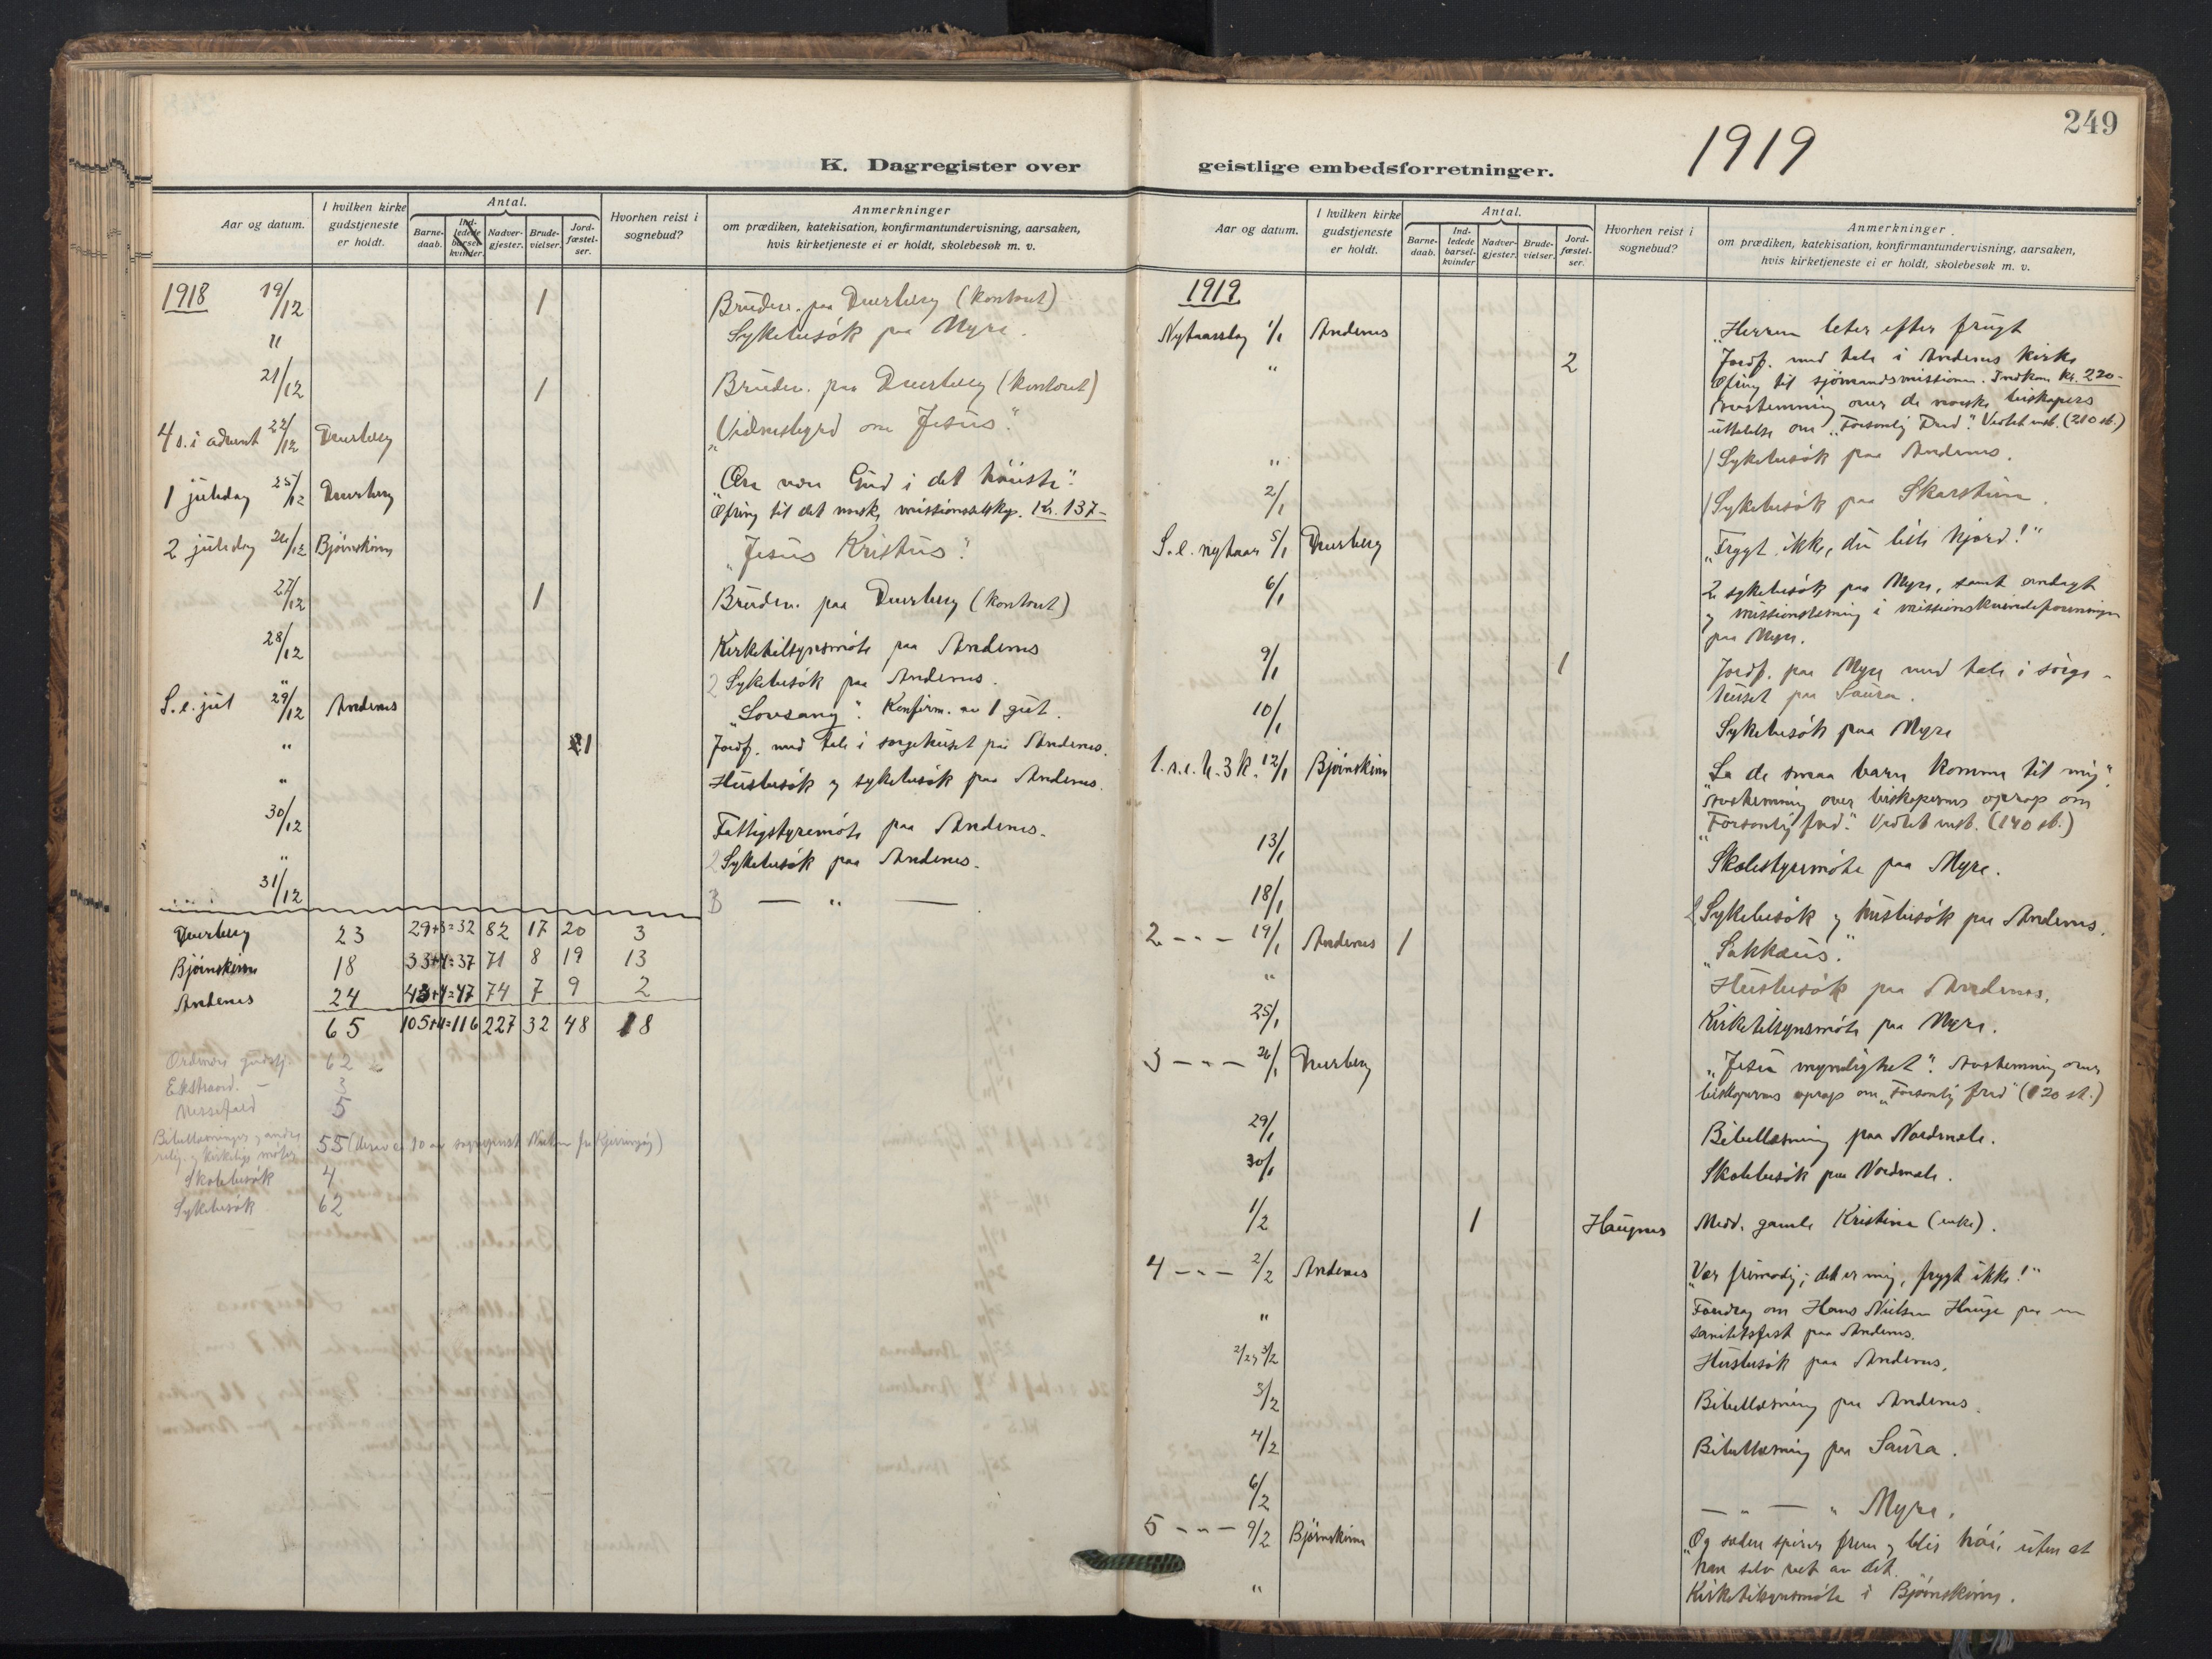 249
1919
K. Dagregister over
geistlige embedsforretninger.
Aar og datum.
I hvilken kirke
gudstjeneste
er holdt.
Antal.
Barne-
daab.
Ind-
ledede
barsel-
kvinder.
Nadver-
gjester.
Brude-
vielser.
Jord-
fæstel-
ser.
Hvorhen reist i
sognebud?
Anmerkninger
om prædiken, katekisation, konfirmantundervisning, aarsaken,
hvis kirketjeneste ei er holdt, skolebesøk m. v.
1918 19/12 1 Brudev. paa Dverberg (kontoret)
" Sykebesök paa Myre.
21/12 1 Brudev. paa Dverberg (kontoret)
4 s. i advent 22/12 Dverberg „Vidnesbyrd om Jesus".
1 juledag 25/12 Dverberg „Ære være Gud i det höieste".
Ofring til det norske missionsselskap. Kr. 137-
2 juledag 26/12 Bjørnskinn „Jesus Kristus".
27/12 1 Brudev. paa Dverberg (kontoret)
28/12 Kirketilsynsmöte paa Andenes
" 2 Sykebesök paa Andenes.
S. e. jul 29/12 Andenes „Lovsang". Konfirm. av 1 gut.
" 1 Jordf. med tale i sorgehuset på Andenes.
" Husbesök og sykebesök paa Andenes.
30/12 Fattigstyremöte paa Andenes.
" 2 Sykebesök paa Andenes.
31/12 3 — " —
Dverberg 23 29+3=32 82 17 20 3
Bjørnskinn 18 33+4=37 71 8 19 13
Andenes 24 43+4=47 74 7 9 2
65 105+11=116 227 32 48 18
Ordinære gudstj. 62
Ekstraord. — 3
Messefald 5
Bibellæsninger og andre
relig. og kirkelige möter 55 (derav er 10 av sogneprest
Skolebesök 4
Sykebesök 62
Aar og datum.
I hvilken kirke
gudstjeneste
er holdt.
Antal.
Barne-
daab.
Ind-
ledede
barsel-
kvinder
Nadver-
gjester.
Brude-
vielser.
Jord-
fæstel-
ser.
Hvorhen reist i
sognebud?
Anmerkninger
om prædiken, katekisation, konfirmantundervisning, aarsaken,
hvis kirketjeneste ei er holdt, skolebesøk m. v.
1919
Nytaarsdag 1/1 Andenes „Herren leter efter frugt
" 2 Jordf. med tale i Andenes kirke
Ofring til sjömandsmissionen. Indkom kr. 220-
Avstemning over de norske biskopers
uttalelse om „Forsonlig Fred". Vedtat enst. (210 st.)
" 1 Sykebesök paa Andenes.
2/1 1 Sykebesök paa Skarstein.
S. e. nytaar 5/1 Dverberg „Frygt ikke, du lille hjord!"
6/1 2 sykebesök paa Myre, samt andagt
og missionslesning i missionskvindeforeningen
paa Myre.
9/1 1 Jordf. paa Myre med tale i sörge-
huset paa Saura.
10/1 Sykebesök paa Myre
1. s. e. h. 3 k. 12/1 Bjørnskinn „La de smaa barn komme til mig".
Avstemning over biskopernes oprop om
„Forsonlig fred". Vedtat enst. (140 st.)
13/1 Skolestyremöte paa Myre.
18/1 2 Sykebesök og husbesök paa Andenes.
2 - " - 19/1 Andenes 1 „Sakkæus".
" Husbesök paa Andenes.
25/1 Kirketilsynsmöte paa Myre.
3 - " - 26/1 Dverberg „Jesu myndighet". Avstemning over
biskopernes oprop om „Forsonlig fred" (120 st.)
29/1 Bibellæsning paa Nordmela.
30/1 Skolebesök paa Nordmela.
1/2 1 Haugnes Medd. gamle Kristina (enke).
4 - " - 2/2 Andenes „Vær frimodig; det er mig, frygt ikke!"
" Foredrag om Hans Nielsen Hauge paa en
sanitetsfest paa Andenes.
2/2 og 3/2 Husbesök paa Andenes.
3/2 Bibellæsning paa Andenes.
4/2 Bibellæsning paa Saura.
6/2 — " — " Myre.
5 - " - 9/2 Bjørnskinn „Og sæden spirer frem og blir höi, uten at
han selv vet av det.
" Kirketilsynsmöte i Bjørnskinn.